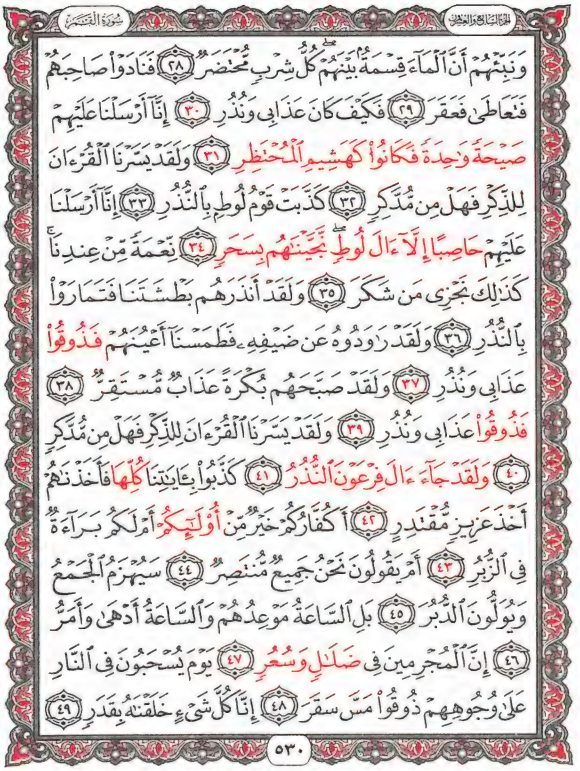 الجزء السابع والعشرون
سُورَةُ القَمَر
وَنَبِّئْهُمْ أَنَّ ٱلْمَآءَ قِسْمَةٌۢ بَيْنَهُمْ ۖ كُلُّ شِرْبٍ مُّحْتَضَرٌ ٢٨ فَنَادَوْا۟ صَاحِبَهُمْ
فَتَعَاطَىٰ فَعَقَرَ ٢٩ فَكَيْفَ كَانَ عَذَابِى وَنُذُرِ ٣٠ إِنَّآ أَرْسَلْنَا عَلَيْهِمْ
صَيْحَةً وَٰحِدَةً فَكَانُوا۟ كَهَشِيمِ ٱلْمُحْتَظِرِ ٣١ وَلَقَدْ يَسَّرْنَا ٱلْقُرْءَانَ
لِلذِّكْرِ فَهَلْ مِن مُّدَّكِرٍ ٣٢ كَذَّبَتْ قَوْمُ لُوطٍۭ بِٱلنُّذُرِ ٣٣ إِنَّآ أَرْسَلْنَا
عَلَيْهِمْ حَاصِبًا إِلَّآ ءَالَ لُوطٍ ۖ نَّجَّيْنَٰهُم بِسَحَرٍ ٣٤ نِّعْمَةً مِّنْ عِندِنَا ۚ
كَذَٰلِكَ نَجْزِى مَن شَكَرَ ٣٥ وَلَقَدْ أَنذَرَهُم بَطْشَتَنَا فَتَمَارَوْا۟
بِٱلنُّذُرِ ٣٦ وَلَقَدْ رَٰوَدُوهُ عَن ضَيْفِهِۦ فَطَمَسْنَآ أَعْيُنَهُمْ فَذُوقُوا۟
عَذَابِى وَنُذُرِ ٣٧ وَلَقَدْ صَبَّحَهُم بُكْرَةً عَذَابٌ مُّسْتَقِرٌّ ٣٨
فَذُوقُوا۟ عَذَابِى وَنُذُرِ ٣٩ وَلَقَدْ يَسَّرْنَا ٱلْقُرْءَانَ لِلذِّكْرِ فَهَلْ مِن مُّدَّكِرٍ
٤٠ وَلَقَدْ جَآءَ ءَالَ فِرْعَوْنَ ٱلنُّذُرُ ٤١ كَذَّبُوا۟ بِـَٔايَٰتِنَا كُلِّهَا فَأَخَذْنَٰهُمْ
أَخْذَ عَزِيزٍ مُّقْتَدِرٍ ٤٢ أَكُفَّارُكُمْ خَيْرٌ مِّنْ أُو۟لَٰٓئِكُمْ أَمْ لَكُم بَرَآءَةٌ
فِى ٱلزُّبُرِ ٤٣ أَمْ يَقُولُونَ نَحْنُ جَمِيعٌ مُّنتَصِرٌ ٤٤ سَيُهْزَمُ ٱلْجَمْعُ
وَيُوَلُّونَ ٱلدُّبُرَ ٤٥ بَلِ ٱلسَّاعَةُ مَوْعِدُهُمْ وَٱلسَّاعَةُ أَدْهَىٰ وَأَمَرُّ
٤٦ إِنَّ ٱلْمُجْرِمِينَ فِى ضَلَٰلٍ وَسُعُرٍ ٤٧ يَوْمَ يُسْحَبُونَ فِى ٱلنَّارِ
عَلَىٰ وُجُوهِهِمْ ذُوقُوا۟ مَسَّ سَقَرَ ٤٨ إِنَّا كُلَّ شَىْءٍ خَلَقْنَٰهُ بِقَدَرٍ ٤٩
٥٣٠